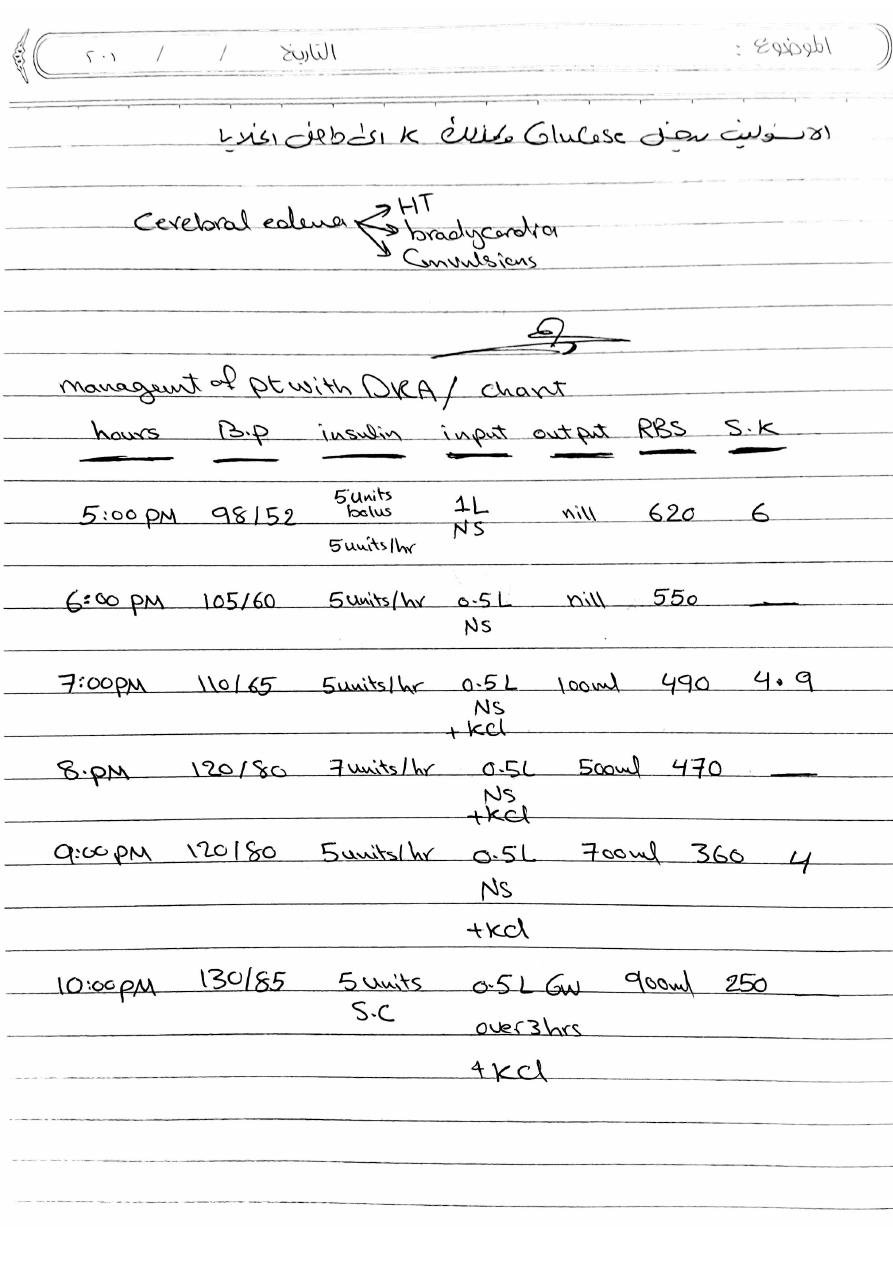 الموضوع : التاريخ / / ٢٠١
الانسولين يدخل Glucose وكذلك K الى داخل الخلايا
Cerebral edema HT
bradycardia
Convulsions
managemt of pt with DKA / chart
hours B.P insulin input output RBS S.K
5:00 PM 98/52 5 units bolus 5 units/hr 1L NS nill 620 6
6:00 PM 105/60 5 units/hr 0.5 L NS nill 550 —
7:00 PM 110/65 5 units/hr 0.5 L NS + kcl 100ml 490 4.9
8.PM 120/80 7 units/hr 0.5L NS +kcl 500ml 470 —
9:00 PM 120/80 5 units/hr 0.5L NS +kcl 700ml 360 4
10:00 PM 130/85 5 units S.C 0.5 L GW over 3 hrs + kcl 900ml 250 —